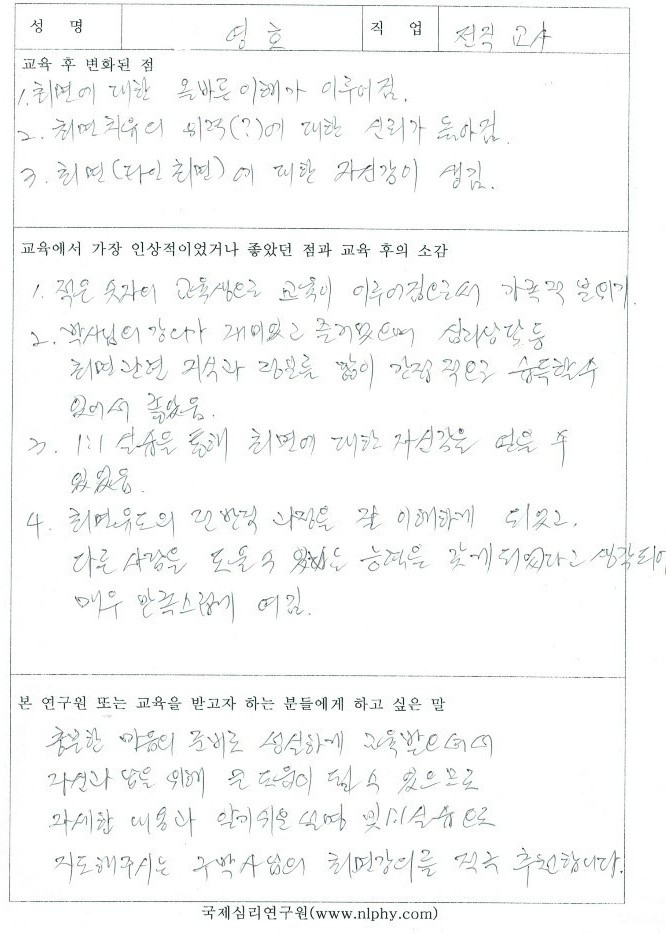 성 명 영호 직 업 전직 교사
교육 후 변화된 점
1. 최면에 대한 올바른 이해가 이루어짐.
2. 최면치유의 기적(?)에 대한 신뢰가 높아짐.
3. 최면(타인최면)에 대한 자신감이 생김.
교육에서 가장 인상적이었거나 좋았던 점과 교육 후의 소감
1. 적은 숫자의 교육생으로 교육이 이루어짐으로서 가족적 분위기.
2. 박사님의 강의가 재미있고 즐거웠으며 심리상담 등
최면관련 지식과 정보를 많이 간접적으로 습득할 수
있어서 좋았음.
3. 1:1 실습을 통해 최면에 대한 자신감을 얻을 수
있었음.
4. 최면유도의 전반적 과정을 잘 이해하게 되었고,
다른 사람을 도울 수 있는 능력을 갖게 되었다고 생각되어
매우 만족스럽게 여김.
본 연구원 또는 교육을 받고자 하는 분들에게 하고 싶은 말
충분한 마음의 준비로 성실하게 교육받으셔서
자신과 남을 위해 큰 도움이 될 수 있으므로
자세한 내용과 알기쉬운 설명 및 1:1 실습으로
지도해주시는 구박사님의 최면강의를 적극 추천합니다.
국제심리연구원(www.nlphy.com)